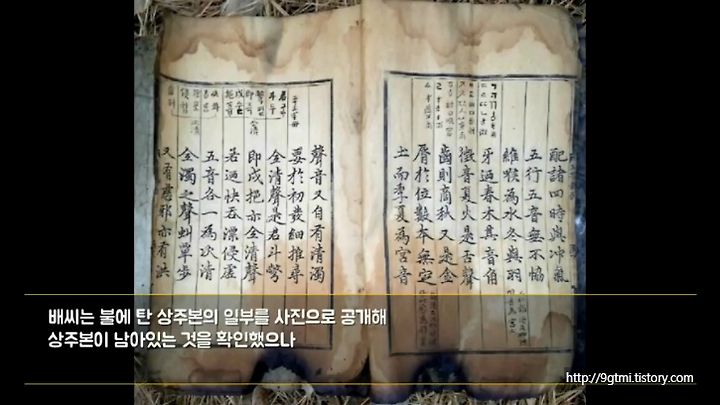 配諸四時與冲氣
五行五音無不恊
維喉為水冬與羽
牙迺春木其音角
徵音夏火是舌聲
齒則商秋又是金
脣於位數本無定
土而季夏為宮音
聲音又自有清濁
要於初發細推尋
全清聲是君斗彆
即戌挹亦全清聲
若迺快呑漂侵虛
五音各一為次清
全濁之聲虯覃步
又有慈邪亦有洪
배씨는 불에 탄 상주본의 일부를 사진으로 공개해
상주본이 남아있는 것을 확인했으나
http://9gtmi.tistory.com